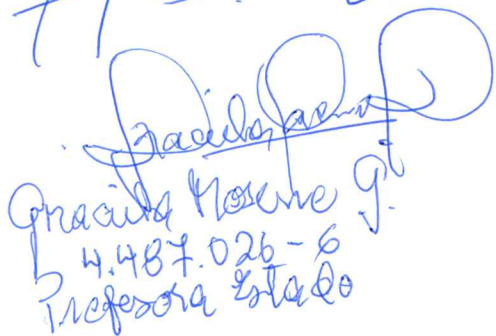 Graciela
Graciela Moreno G.
4.487.026-6
Profesora Estado